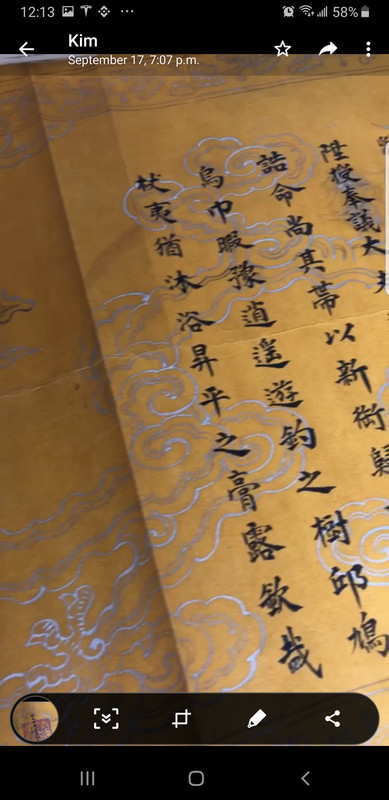 12:13
58%
Kim
September 17, 7:07 p.m.
陞授奉議大
誥命尚其帶以新銜歸
烏巾暇豫逍遙遊釣之樹邱鳩
杖夷猶沐浴昇平之膏露欽哉